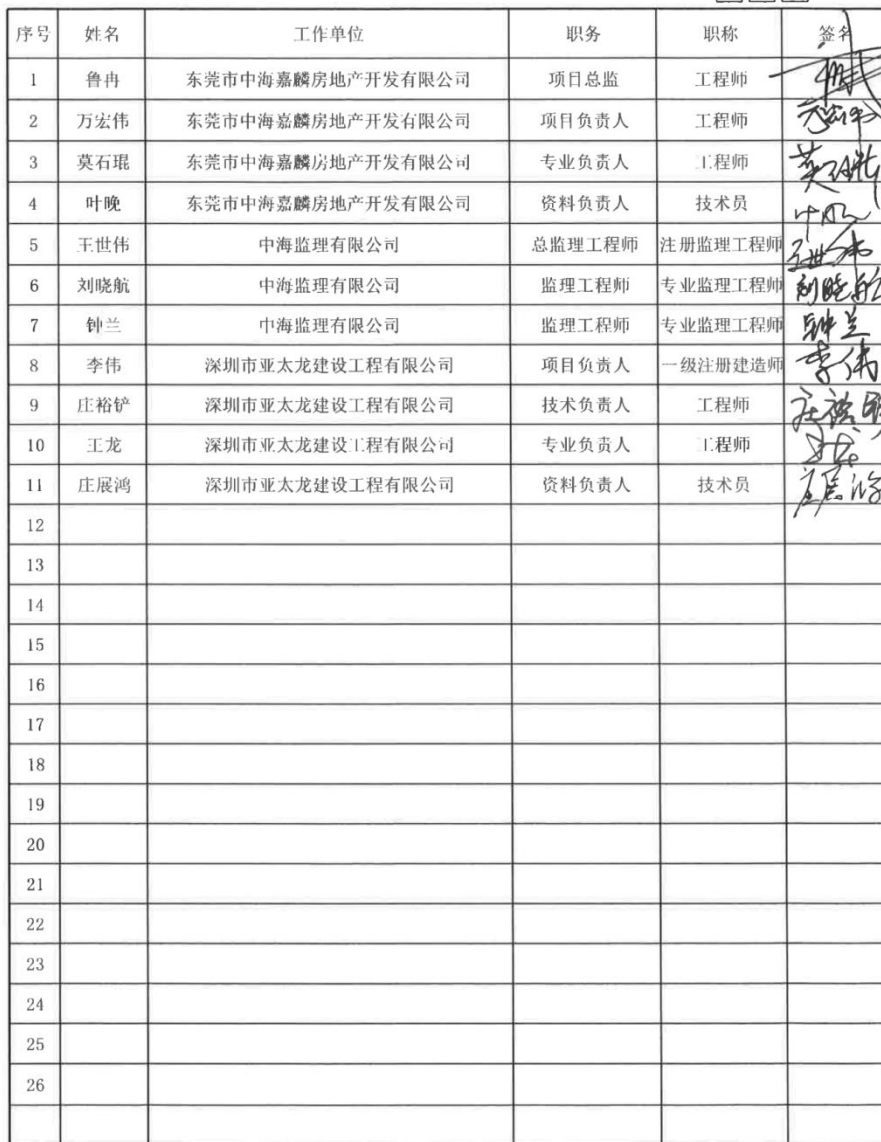 序号 姓名 工作单位 职务 职称 签名
1 鲁冉 东莞市中海嘉麟房地产开发有限公司 项目总监 工程师
2 万宏伟 东莞市中海嘉麟房地产开发有限公司 项目负责人 工程师
3 莫石琨 东莞市中海嘉麟房地产开发有限公司 专业负责人 工程师
4 叶晚 东莞市中海嘉麟房地产开发有限公司 资料负责人 技术员
5 王世伟 中海监理有限公司 总监理工程师 注册监理工程师 王世伟
6 刘晓航 中海监理有限公司 监理工程师 专业监理工程师 刘晓航
7 钟兰 中海监理有限公司 监理工程师 专业监理工程师 钟兰
8 李伟 深圳市亚太龙建设工程有限公司 项目负责人 一级注册建造师 李伟
9 庄裕铲 深圳市亚太龙建设工程有限公司 技术负责人 工程师
10 王龙 深圳市亚太龙建设工程有限公司 专业负责人 工程师
11 庄展鸿 深圳市亚太龙建设工程有限公司 资料负责人 技术员
12
13
14
15
16
17
18
19
20
21
22
23
24
25
26